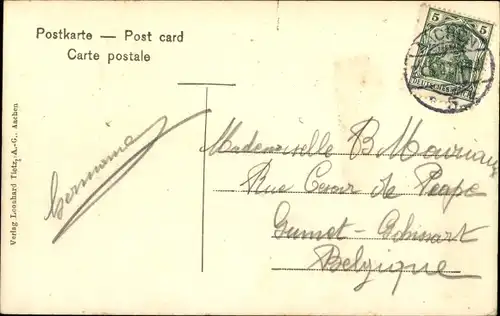 Postkarte — Post card
Carte postale
5 5
DEUTSCHES REICH
Verlag Leonhard Tietz, A.-G., Aachen
Germaine
Mademoiselle B
Rue Cour de
Gumet-Gohissart
Belgique